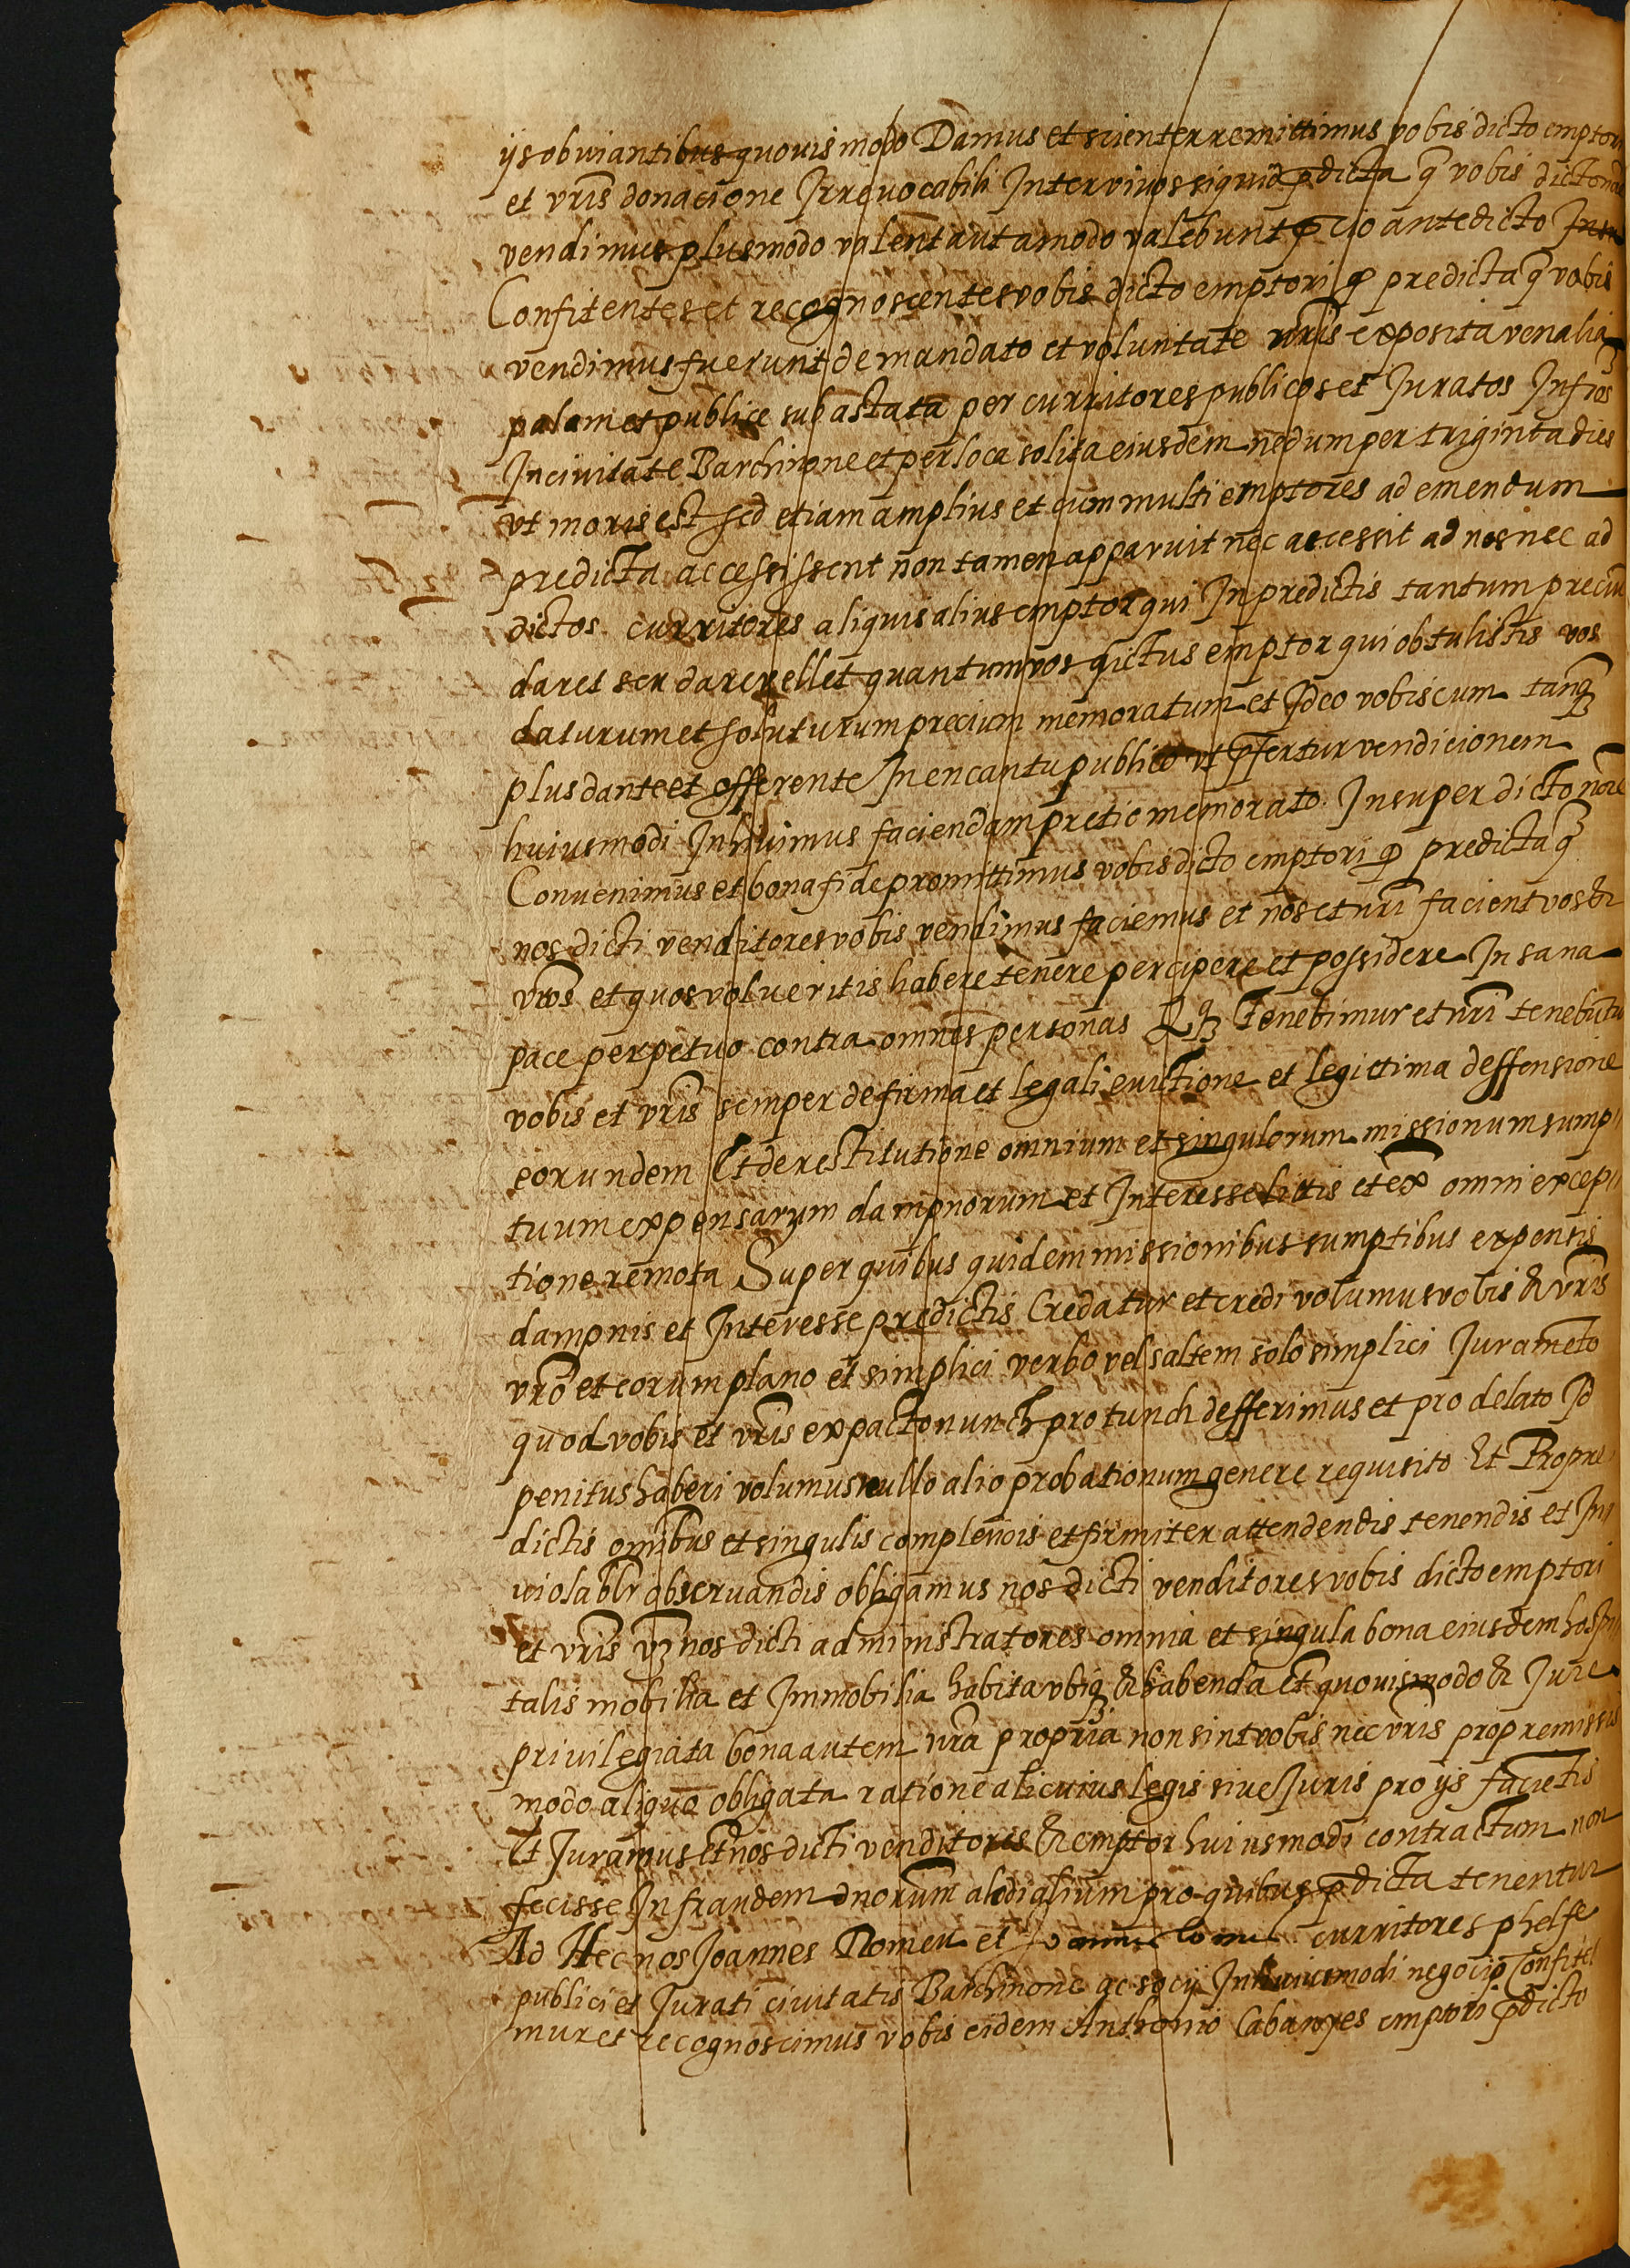 ijs obuiantibus quouis modo Damus et scienter remittimus vobis dicto emptori
et vr̄is donacione Irreuocabili Inter viuos siquid p̄dicta q̄ vobis dicto noīe
vendimus plus modo valent aut amodo valebunt p̄cio antedicto
Confitentes et recognoscentes vobis dicto emptori q̨ predicta q̄ vobis
vendimus fuerunt de mandato et voluntate nr̄is exposita venalia
palam et publice subastata per curritores publicos et Juratos Infr̄os
In ciuitate Barchinone et per loca solita eiusdem nedum per triginta dies
vt moris est sed etiam amplius et cum multi emptores ad emendum
predicta accessissent non tamen apparuit nec accessit ad nos nec ad
dictos curritores aliquis alius emptor qui In predictis tantum preciū
daret seu dare vellet quantum vos dictus emptor qui obtulistis vos
daturum et soluturum precium memoratum et Ideo vobiscum tanq̄
plus dante et offerente In encantu publico vt p̄fertur vendicionem
huiusmodi Inhiuimus faciendam pretio memorato Insuper dicto noīe
Conuenimus et bona fide promittimus vobis dicto emptori q̨ predicta q̄
nos dicti venditores vobis vendimus faciemus et nos et nr̄i facient vos &
vr̄os et quos volueritis habere tenere percipere et possidere In sana
pace perpetuo contra omnes personas Tenebimur et nr̄i tenebūtur
vobis et vr̄is semper de firma et legali euictione et legittima deffensione
eorundem Et de restitutione omnium et singulorum missionum sump
tuum expensarum dampnorum et Interesse litis et ex omni excep
tione remota Super quibus quidem missionibus sumptibus expensis
dampnis et Interesse predictis Credatur et credi volumus vobis & vr̄is
vr̄o et eorum plano et simplici verbo vel saltem solo simplici Jurameto
quod vobis et vr̄is ex pacto nunch pro tunch defferimus et pro delato Id
penitus haberi volumus nullo alio probationum genere requisito Et Propre
dictis omībus et singulis complendis et firmiter attendendis tenendis et In
uiolablr̄ obseruandis obligamus nos dicti venditores vobis dicto emptori
et vr̄is vz nos dicti administratores omnia et singula bona eiusdem hospi
talis mobilia et Immobilia habita vbiq̨ & habenda Et quouismodo & Jure
priuilegiata bona autem nr̄a propria non sint vobis nec vr̄is pro premissis
modo aliquo obligata ratione alicuius legis siue Juris pro ijs facietis
Et Juramus Et nos dicti venditores & emptor huiusmodi contractum non
fecisse In fraudem dnorum alodialium pro quibus p̄dicta tenentur
Ad Hec nos Joannes Romeu et curritores
publici et Jurati ciuitatis Barchinone ac socij In huiusmodi negocio Confite
mur et recognoscimus vobis eidem Anthonio Cabanyes emptori p̄dicto